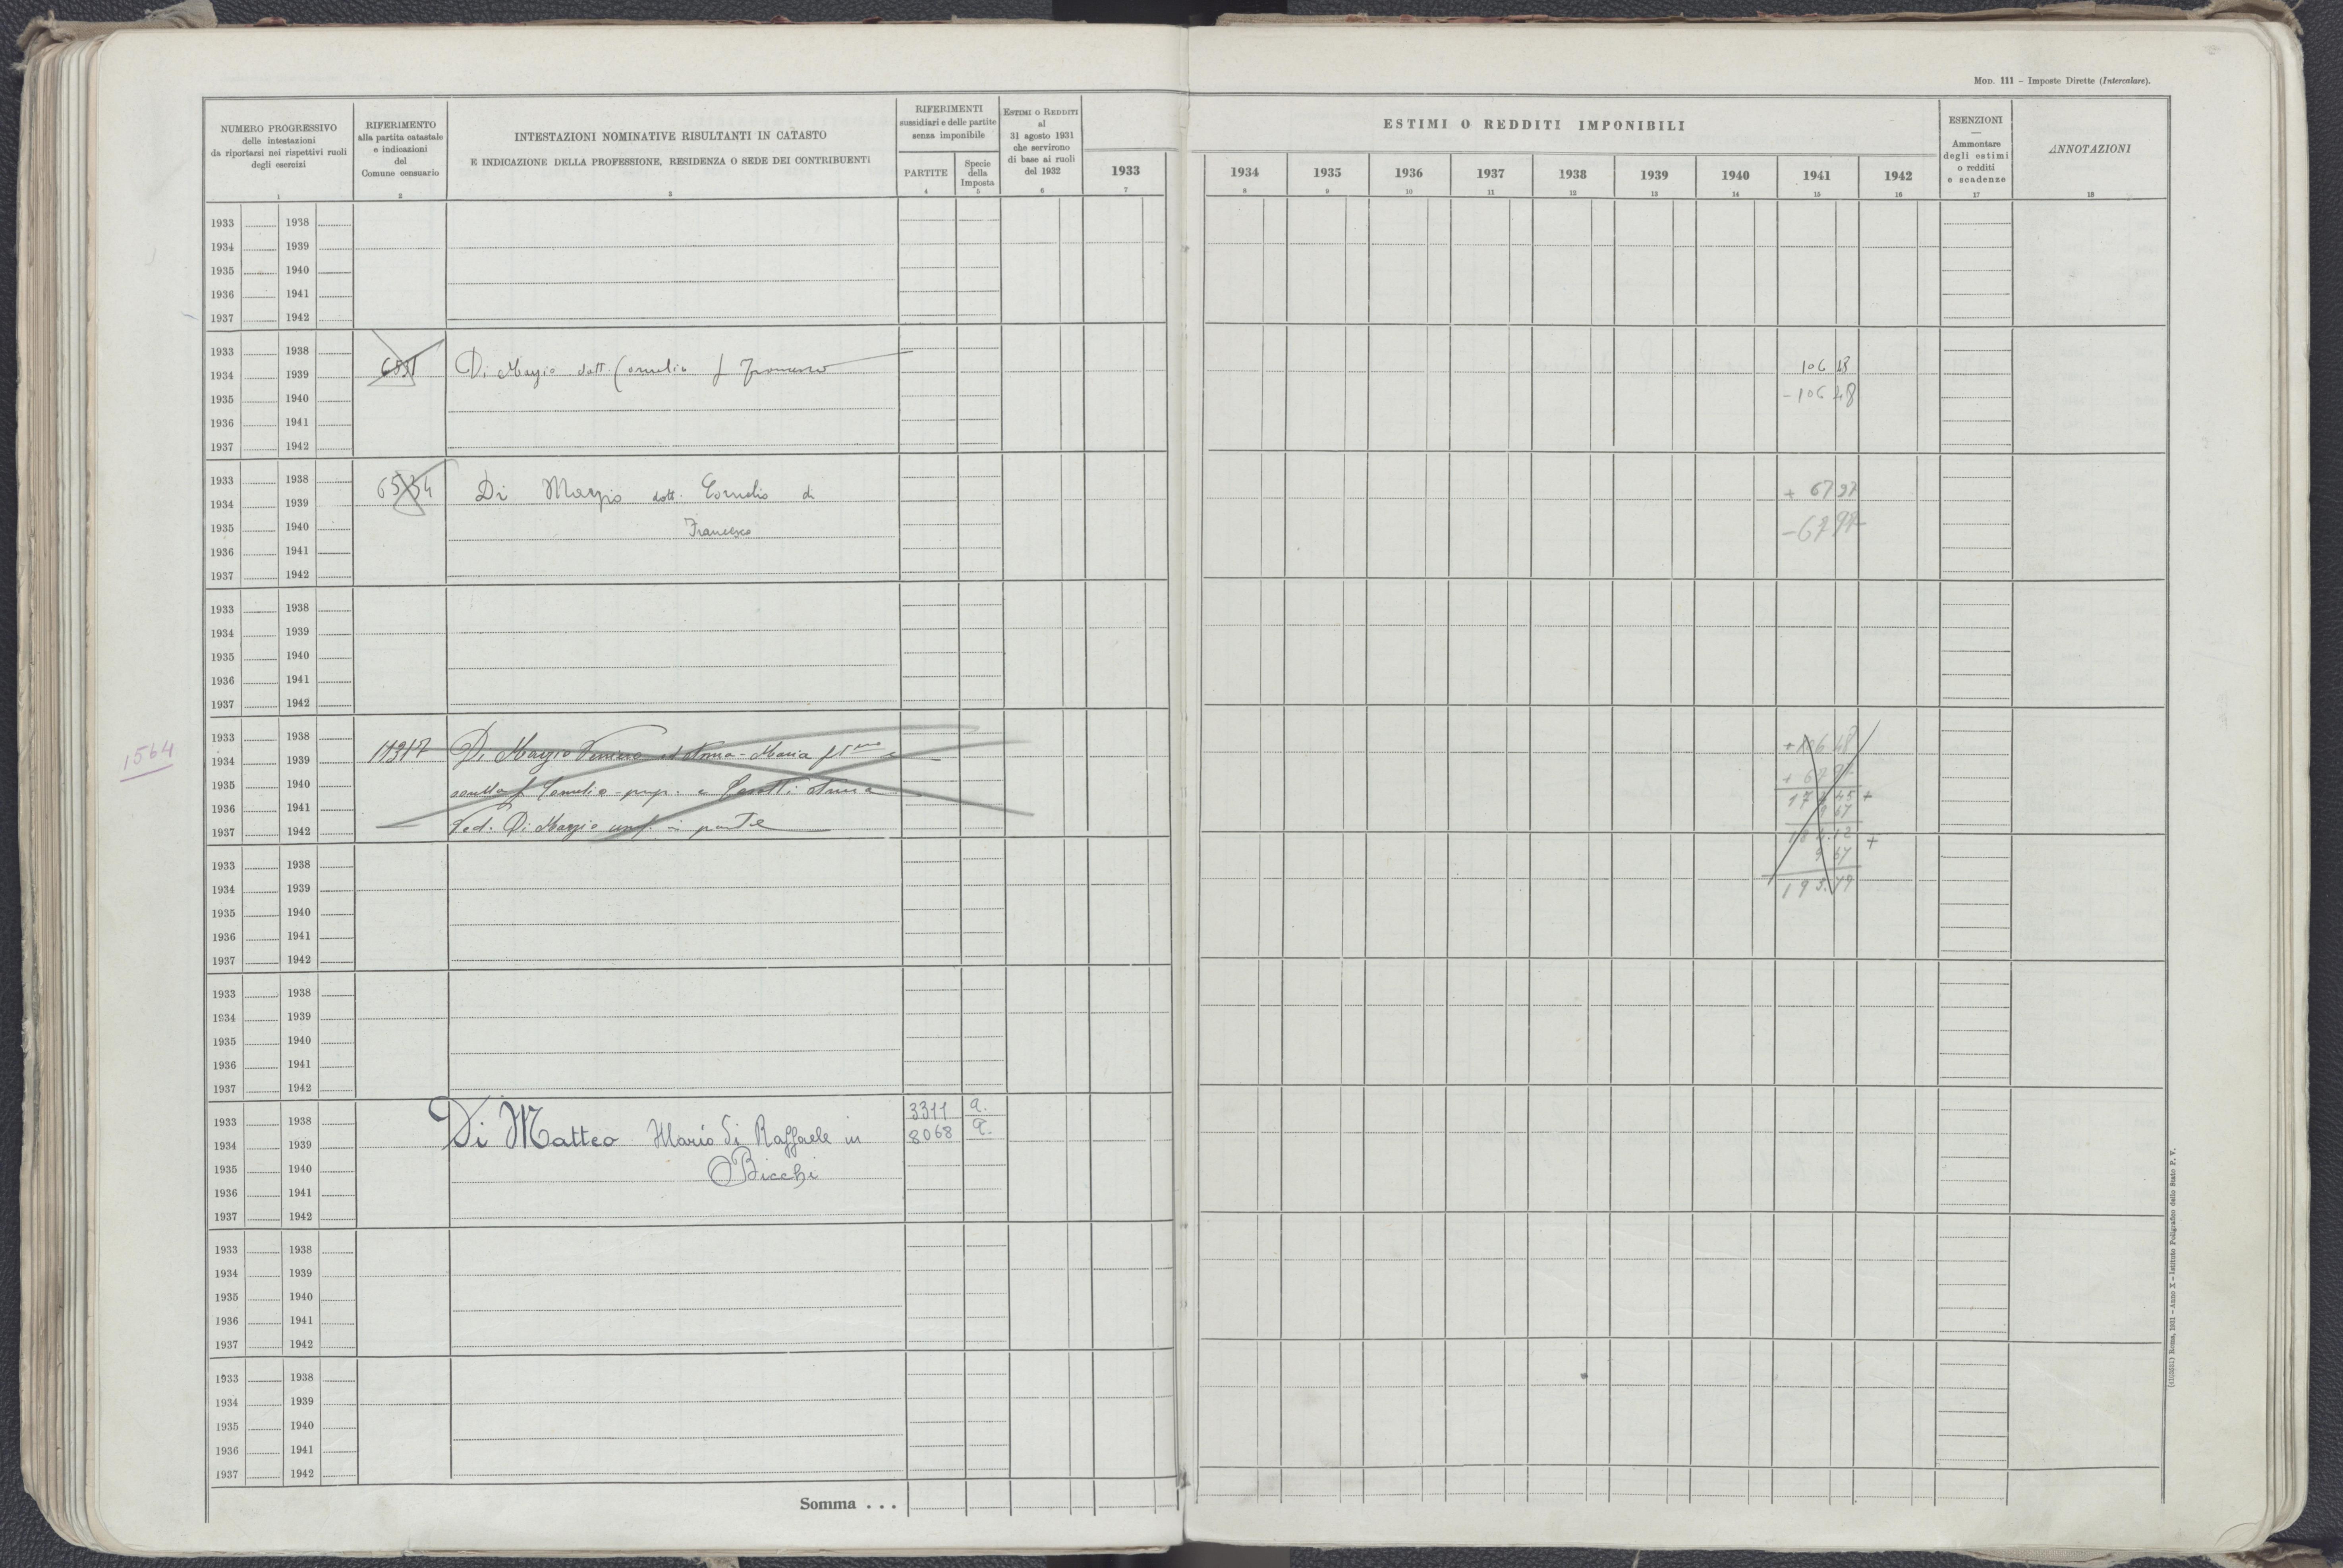 MOD. 111 – Imposte Dirette (Intercalare).
NUMERO PROGRESSIVO
delle intestazioni
da riportarsi nei rispettivi ruoli
degli esercizi
1
RIFERIMENTO
alla partita catastale
e indicazioni
del
Comune censuario
2
INTESTAZIONI NOMINATIVE RISULTANTI IN CATASTO
E INDICAZIONE DELLA PROFESSIONE, RESIDENZA O SEDE DEI CONTRIBUENTI
3
RIFERIMENTI
sussidiari e delle partite
senza imponibile
PARTITE
4
Specie
della
Imposta
5
ESTIMI O REDDITI
al
31 agosto 1931
che servirono
di base ai ruoli
del 1932
6
1933
7
ESTIMI O REDDITI IMPONIBILI
1934 1935 1936 1937 1938 1939 1940 1941 1942
8 9 10 11 12 13 14 15 16
ESENZIONI
—
Ammontare
degli estimi
o redditi
e scadenze
17
ANNOTAZIONI
18
1933 1938
1934 1939
1935 1940
1936 1941
1937 1942
1933 1938
1934 1939 Di Mazzio dott. Cornelio f Francesco 106
1935 1940 -106 48
1936 1941
1937 1942
1933 1938
1934 1939 6534 Di Mazzio dott. Cornelio di + 67 97
1935 1940 Francesco -67 97
1936 1941
1937 1942
1933 1938
1934 1939
1935 1940
1936 1941
1937 1942
1564
1933 1938 +106 48
1934 1939 11317 Di Mazzio et Anna-Maria + 67 97
1935 1940 Cornelio - prop. e Anna 174 45 +
1936 1941 9 67
1937 1942 Ved. Di Mazzio usuf. in parte 184.12 +
1933 1938 9 67
1934 1939 193.79
1935 1940
1936 1941
1937 1942
1933 1938
1934 1939
1935 1940
1936 1941
1937 1942
1933 1938 3311 a.
1934 1939 Di Matteo Maria di Raffaele in 8068 a.
1935 1940 Bicchi
1936 1941
1937 1942
1933 1938
1934 1939
1935 1940
1936 1941
1937 1942
1933 1938
1934 1939
1935 1940
1936 1941
1937 1942
Somma . . .
(4100351) Roma, 1931 – Anno X – Istituto Poligrafico dello Stato P. V.